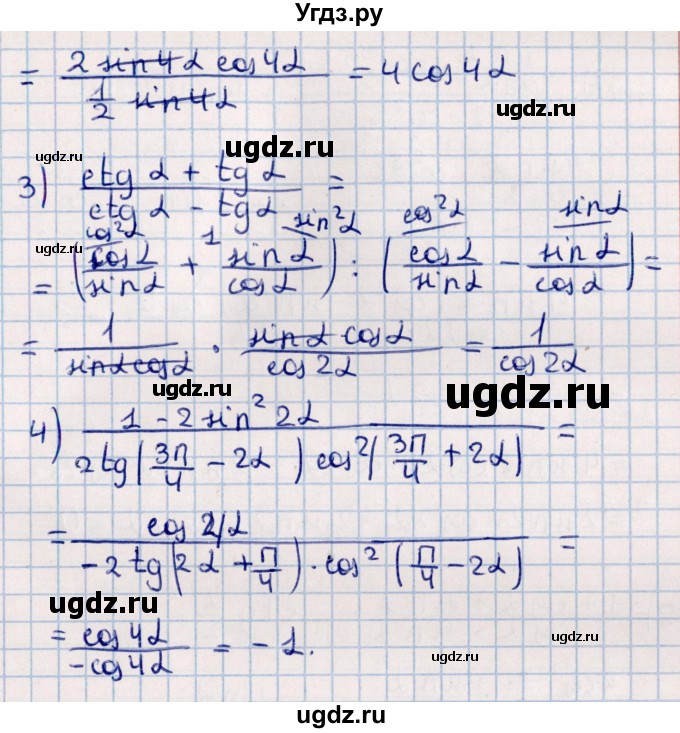 Угдз.ру
= (2 sin4α cos4α)/(1/2 sin4α) = 4 cos4α
ugdz.ru
ugdz.ru
ugdz.ru
3) (ctg α + tg α)/(ctg α - tg α) =
ugdz.ru
ugdz.ru
cos²α 1 sin²α cos²α sin α
= (cos α/sin α + sin α/cos α) : (cos α/sin α - sin α/cos α) =
= 1/(sin α cos α) · (sin α cos α)/(cos 2α) = 1/(cos 2α).
ugdz.ru
ugdz.ru
4) (1 - 2 sin² 2α)/(2 tg(3π/4 - 2α) cos²(3π/4 + 2α)) =
ugdz.ru
= (cos 2α)/(-2 tg(2α + π/4) · cos²(π/4 - 2α)) =
ugdz.ru
ugdz.ru
= cos4α/-cos4α = -1.
ugdz.ru
ugdz.ru